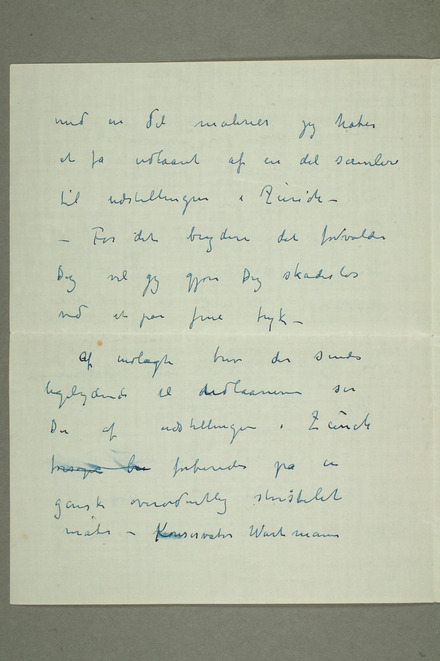 med en del malerier jeg håber
at få udlaant af en del samlere
til udstillingen i Zürich –
– For det bryderi det forvolder
Dig vil jeg gjøre Dig skadeslös
med et par fine tryk –
Af indlagte brev der sendes
til udlaanerne ser
Du at udstillingen i Zürich
forberedes på en
ganske overordentlig storstilet
måte – Konservator Wartmann